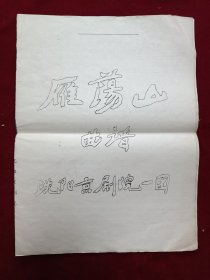 雁荡山
曲谱
沈阳京剧院一团